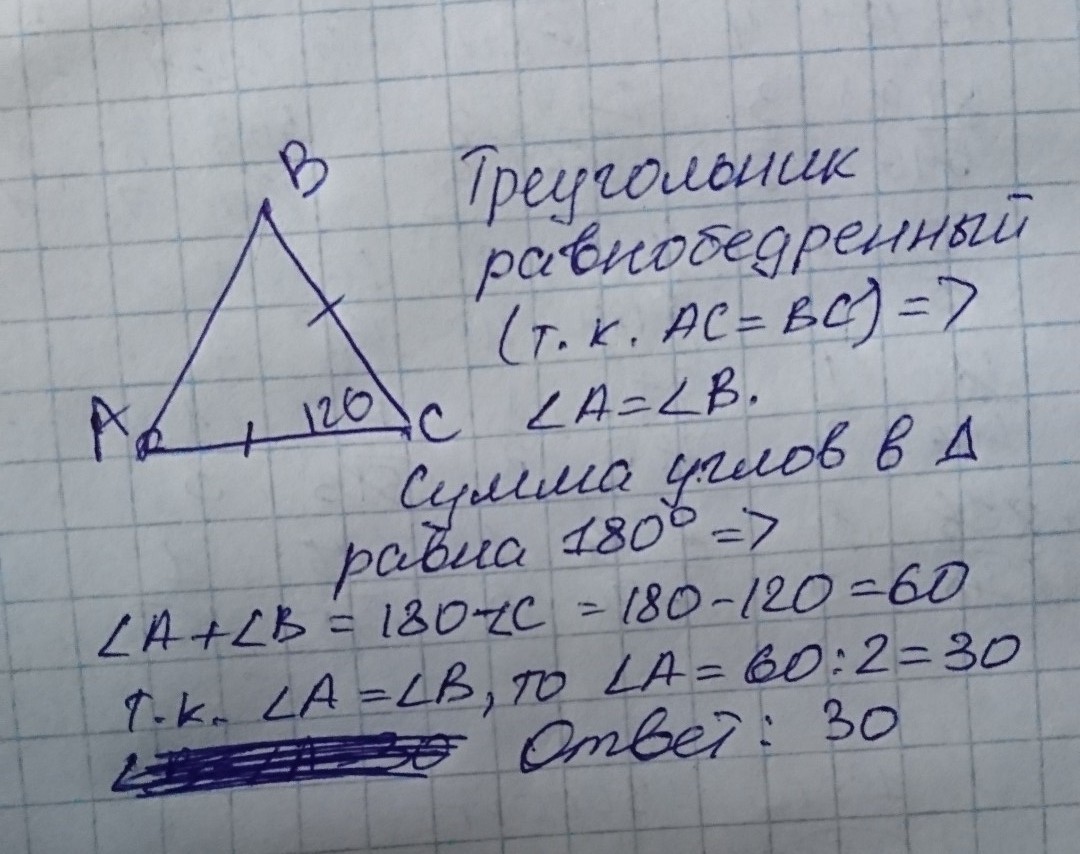 B
Треугольник
равнобедренный
(т.к. AC = BC) =>
A 120 C
∠A = ∠B.
Сумма углов в Δ
равна 180° =>
∠A + ∠B = 180 - ∠C = 180 - 120 = 60
т.к. ∠A = ∠B, то ∠A = 60 : 2 = 30
Ответ: 30